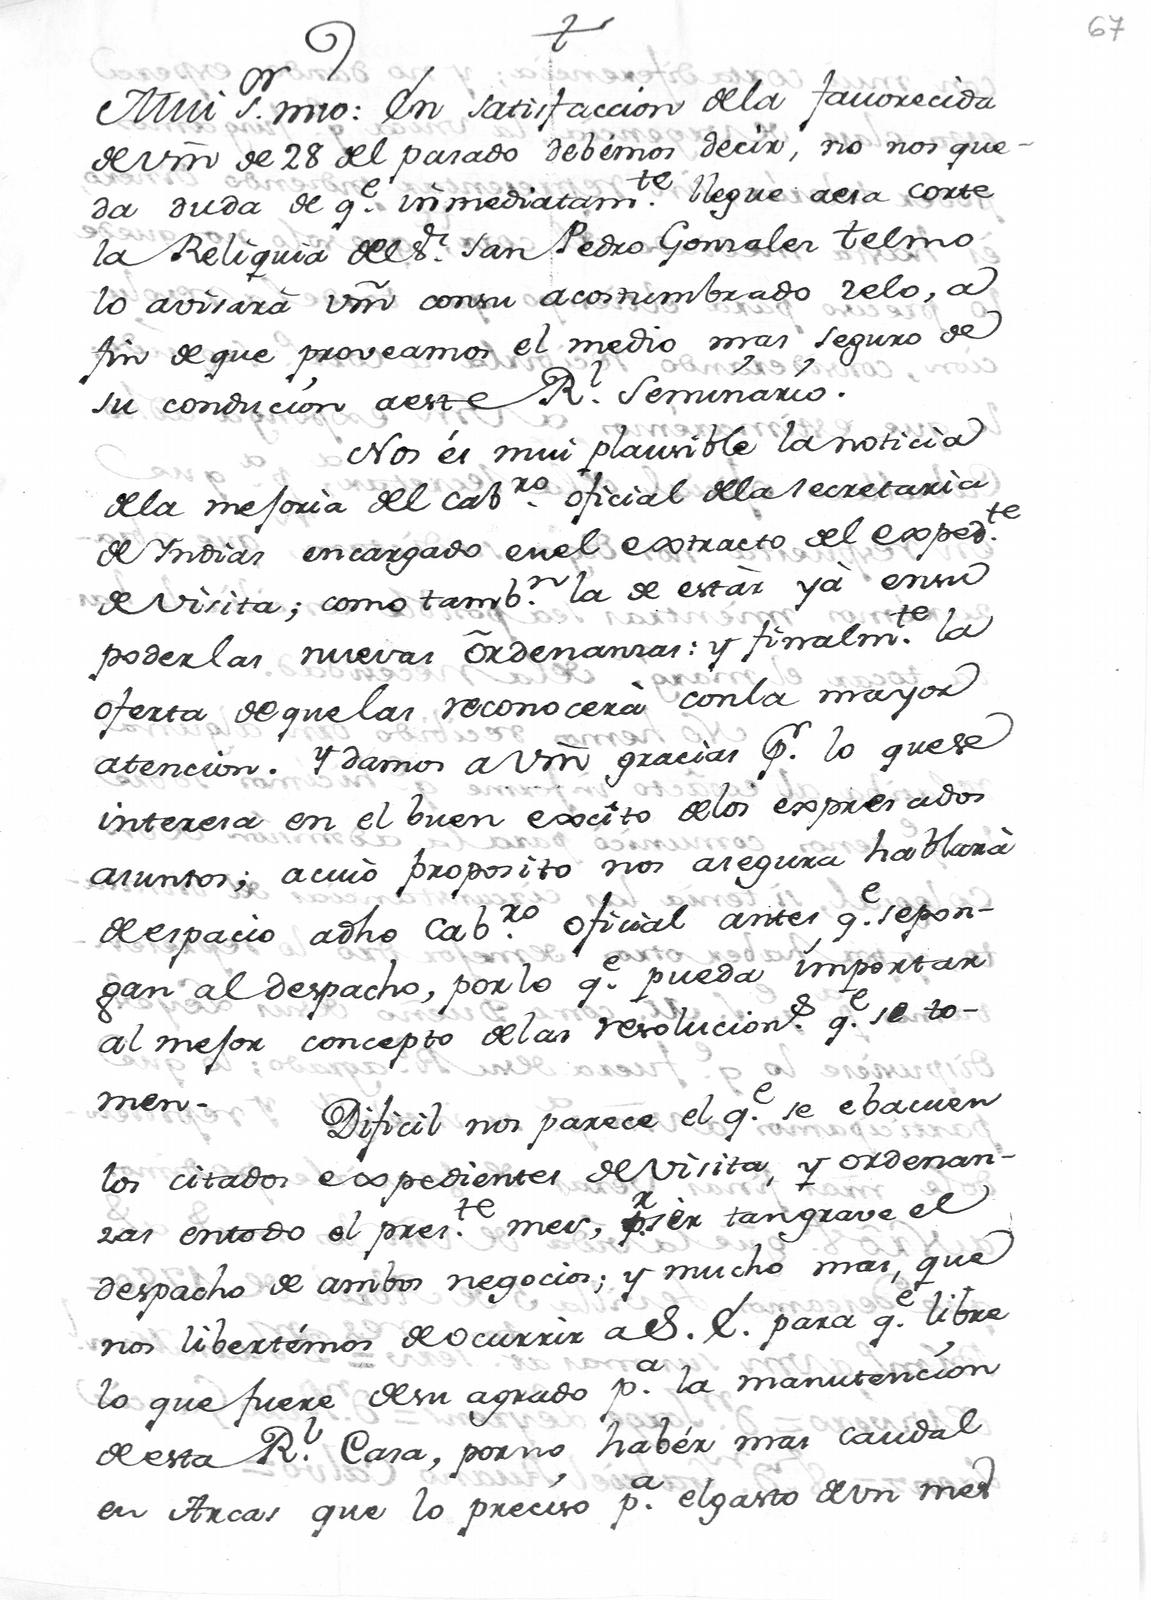 67
Mui S.or mio: En satisfaccion dela favorecida
de Vm̃ de 28 del pasado debémos decir, no nos que-
da duda de q.e inmediatam.te llegue aesa corte
la Reliquia del S.r San Pedro Gonsales Telmo
lo avisarà Vm̃ consu acostumbrado zelo, a
fin de que proveamos el medio mas seguro de
su condución aeste R.l Seminário.
Nos és mui plausible la noticia
dela mejoria del Cab.ro oficial dela secretaria
de Yndias encargado enel extracto del exped.te
de Visita; como tamb.n la de estàr yà ensu
poderlas nuevas õrdenansas: y finalm.te la
oferta de quelas reconocerà conla mayor
atencion. Y damos a Vm̃ gracias p.r lo quese
interesa en el buen excito delos expresados
asuntos; acuiò proposito nos asegura hablarà
despacio adho Cab.ro oficial antes q.e sepon-
gan al despacho, porlo q.e pueda importar
al mejor concepto delas resolucion.s q.e se to-
men.
Dificil nos parece el q.e se ebacuen
los citados expedientes de Visita, y ordenan-
zas entodo el pres.te mes, p.r sèr tangrave el
despacho de ambos negocios; y mucho mas, que
nos libertémos de ocurrir a S. E. para q.e libre
lo que fuere desu agrado p.a la manutención
de esta R.l Casa, porno habér mas caudal
en Arcas que lo preciso p.a elgasto de un mes